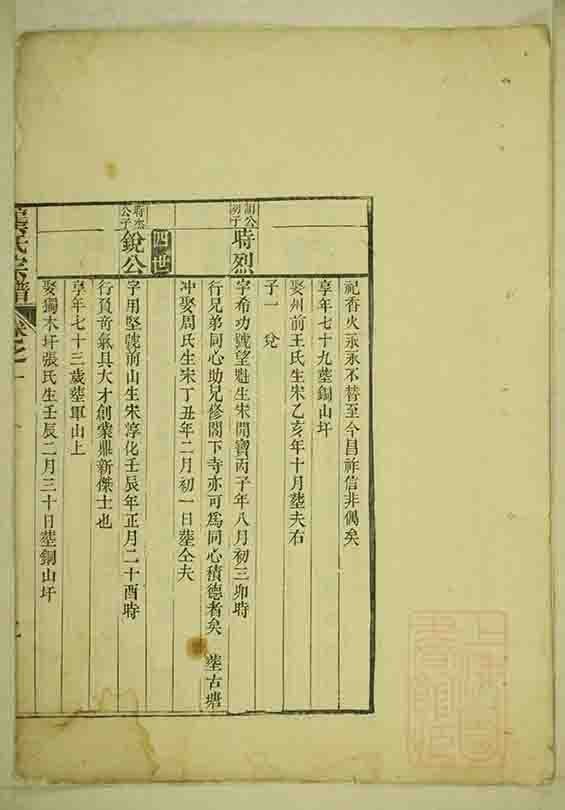 祀香火永永不替至今昌祚信非偶矣
享年七十九塟銅山圩
娶州前王氏生宋乙亥年十月塟夫右
子一 兌
韶公次子 時烈 字希功號望魁生宋開寶丙子年八月初三卯時
行兄弟同心助兄修閣下寺亦可為同心積德者矣 塟古塘
冲娶周氏生宋丁丑年二月初一日塟仝夫
四世
時烈公子 銳公 字用堅號前山生宋淳化壬辰年正月二十酉時
行貟奇氣具大才創業鼎新傑士也
享年七十三歲塟軍山上
娶獨木圩張氏生壬辰二月三十日塟銅山圩
氏宗譜 卷之一